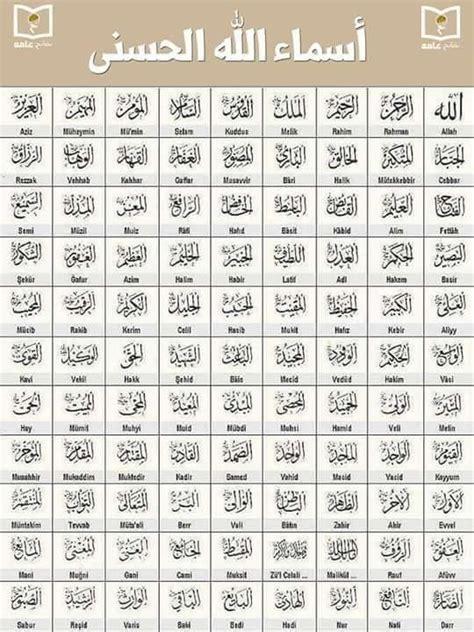 أسماء الله الحسنى
الله الرحمن الرحيم الملك القدوس السلام المؤمن المهيمن العزيز
Aziz Müheymin Mü'min Selam Kuddus Melik Rahim Rahman Allah
الجبار المتكبر الخالق البارئ المصور الغفار القهار الوهاب الرزاق
Rezzak Vehhab Kahhar Gaffar Musavvir Bâri Halik Mütekebbir Cebbar
الفتاح العليم القابض الباسط الخافض الرافع المعز المذل السميع
Semi Müzil Muiz Râfi Hafıd Bâsıt Kâbid Alim Fettâh
البصير الحكم العدل اللطيف الخبير الحليم العظيم الغفور الشكور
Şekür Ğafur Azim Halim Habir Latif Adl Hakem Basir
العلي الكبير الحفيظ المقيت الحسيب الجليل الكريم الرقيب المجيب
Mücib Rakib Kerim Celil Hasib Mukit Hafız Kebir Aliyy
الواسع الحكيم الودود المجيد الباعث الشهيد الحق الوكيل القوي
Kavi Vekil Hakk Şehid Bâis Mecid Vedüd Hakim Vâsi
المتين الولي الحميد المحصي المبدئ المعيد المحيي المميت الحي
Hay Mümit Muhyi Muid Mübdi Muhsi Hamid Veli Metin
القيوم الواجد الماجد الواحد الصمد القادر المقتدر المقدم المؤخر
Muahhir Mukaddim Muktedir Kadir Samed Vahid Macid Vacid Kayyum
الأول الآخر الظاهر الباطن الوالي البر المتعالي التواب المنتقم
Müntekim Tevvab Müte'ali Berr Vali Bâtın Zahir Ahir Evvel
العفو الرؤوف مالك الملك ذو الجلال والإكرام المقسط الجامع الغني المغني المانع
Mani Muğni Gani Cami Muksit Zü'l Celali ... Malikül ... Rauf Afüvv
الضار النافع النور الهادي البديع الباقي الوارث الرشيد الصبور
Sabur Reşid Varis Baki Bedi Hadi Nur Nafi Darr